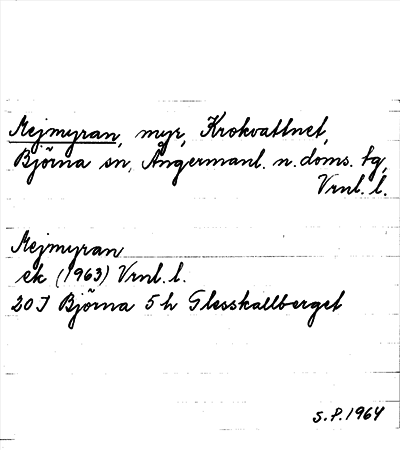 Mejmyran, myr, Krokvattnet,
Björna sn, Ångermanl. n. doms. tg,
Vrnl. l.
Mejmyran
ek (1963) Vrnl. l.
20 J Björna 5 h Glesskallberget
S. P. 1964